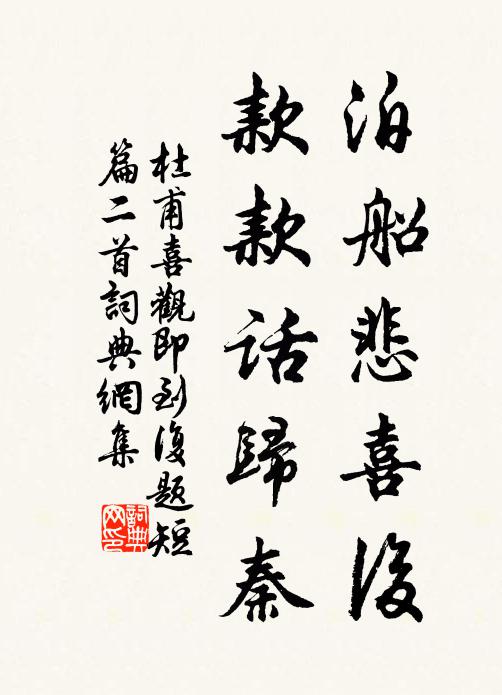 泊船悲喜後
款款话歸秦
杜甫喜觀即到復题短
篇二首詞典網集
詞典
网印